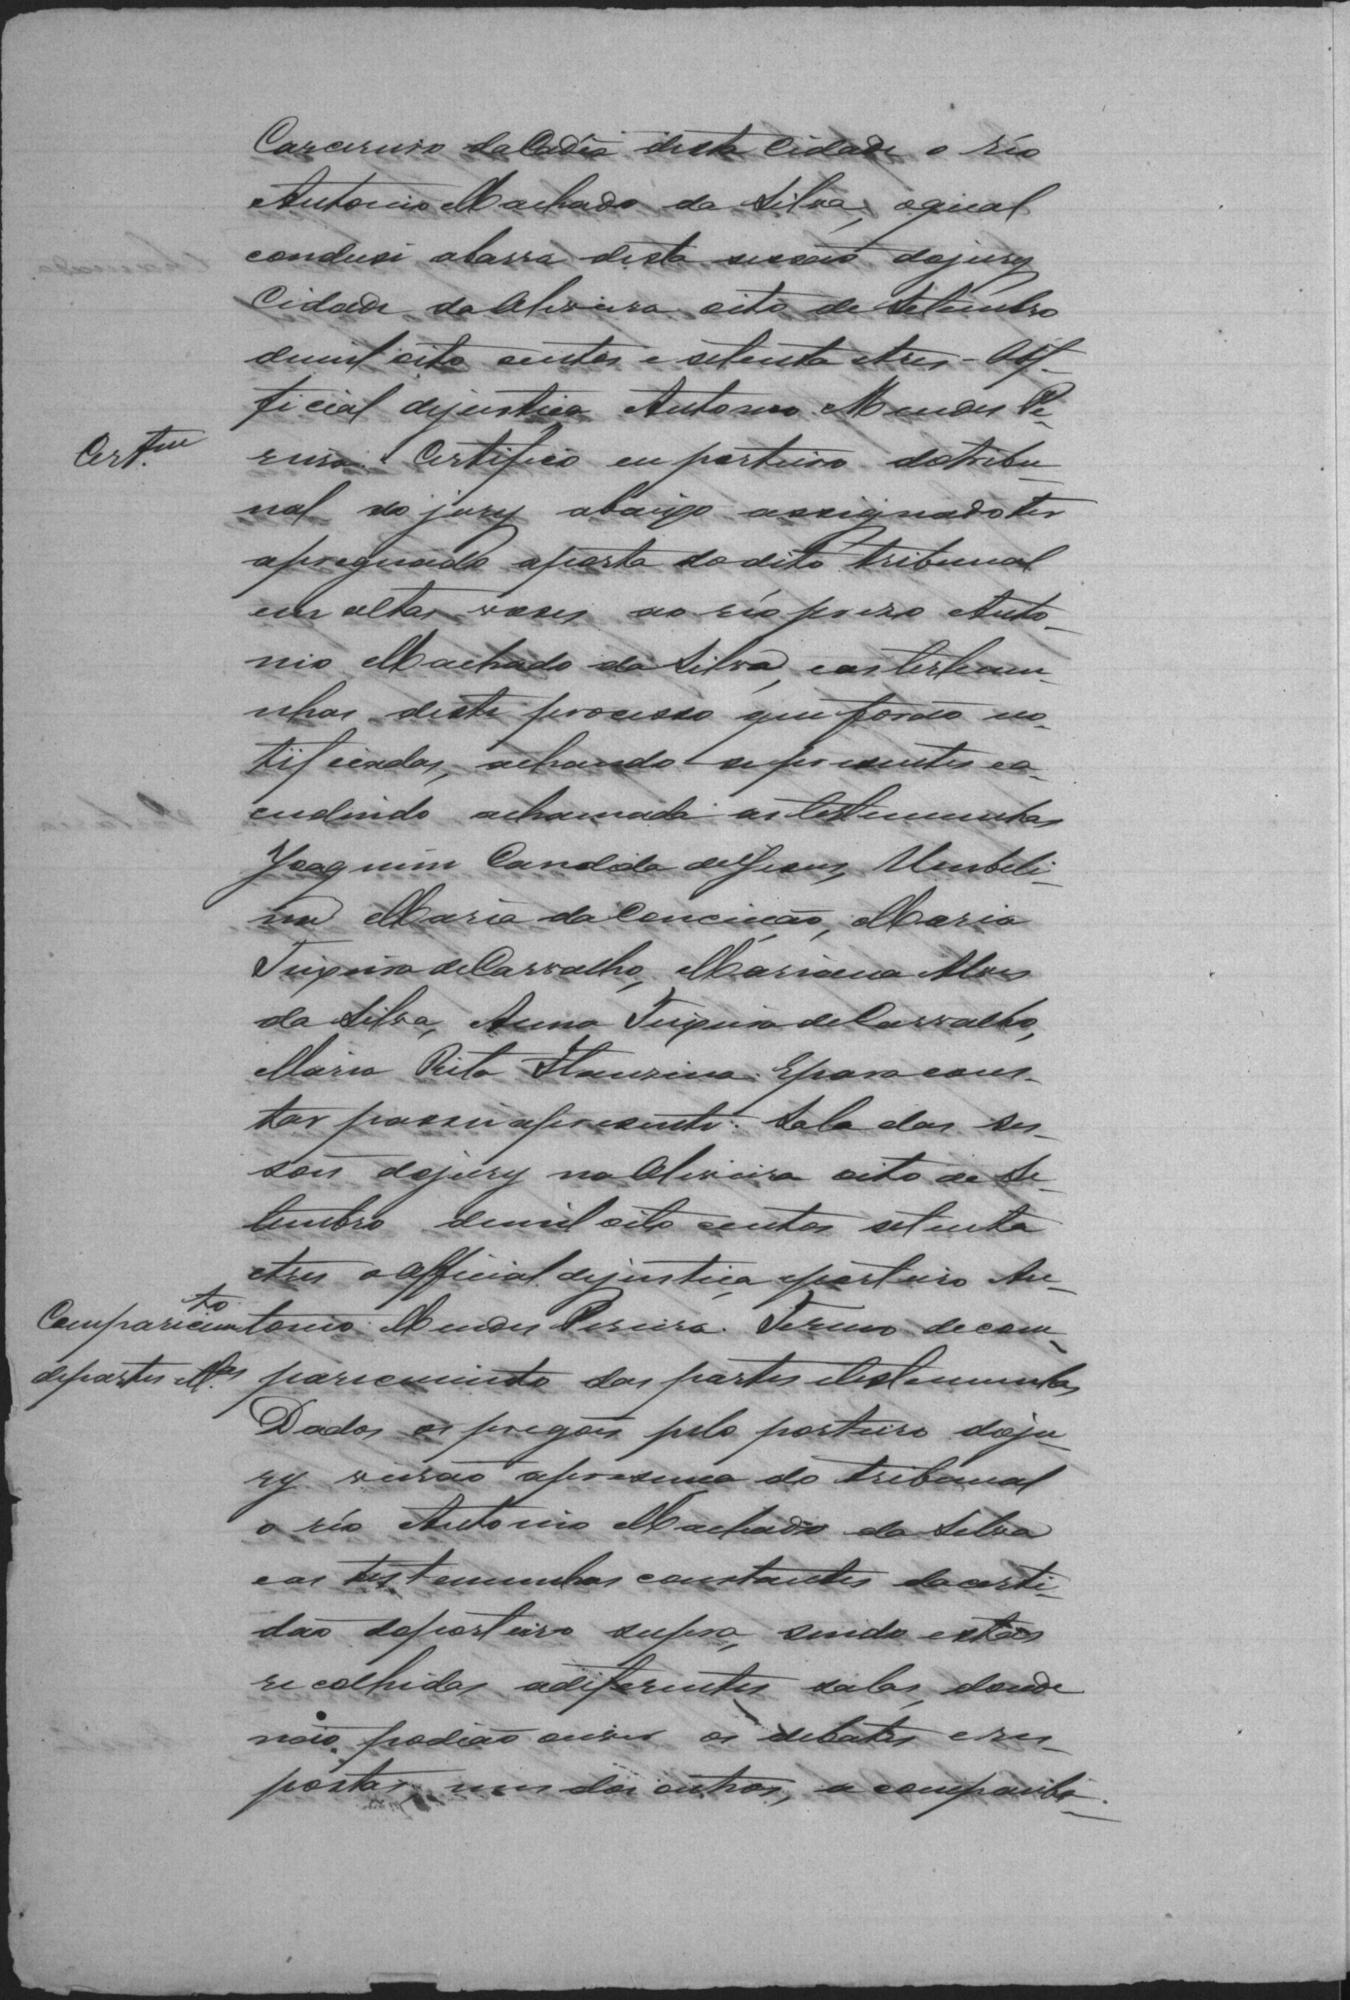 Carcereiro da Cadêa desta Cidade o réo
Antonio Machado da Silva, oqual
condusi abarra desta sessaõ dojury
Cidade da Oliveira oito de Setembro
demil oito centos e setenta etres - Of-
ficial dejustiça Antonio Mendes Pe-
Cert.am reira. Certifico eu porteiro dotribu-
nal do jury abaixo assignado ter
apregoado aporta do dito tribunal
em altas voses ao réo prezo Anto-
nio Machado da Silva, eas testemu-
nhas deste processo que foraõ no-
tificadas, achando se presentes ea-
cudindo achamada as testemunhas
Joaquim Candido de Jesus, Umbeli-
na Maria da Conceicaõ, Maria
Teixeira de Carvalho, Mariana Alves
da Silva, Anna Teixeira de Carvalho,
Maria Rita. Epara cons-
tar passei apresente. Sala das Ses-
soes dojury na Oliveira oito de Se-
tembro demil oito centos setenta
etres o official dejustiça eporteiro An-
Comparicimto tonio Mendes Pereira. Termo de com-
departes et.as paricimento das partes etestemunhas
Dados os pregões pelo porteiro doju-
ry viraõ apresença do tribunal
o réo Antonio Machado da Silva
eas testemunhas constantes dacerti-
daõ doporteiro supra, sendo estas
recolhidas adiferentes salas, donde
naõ podiaõ ouvir os debates eres-
postas, uns dos outros, a companhi-